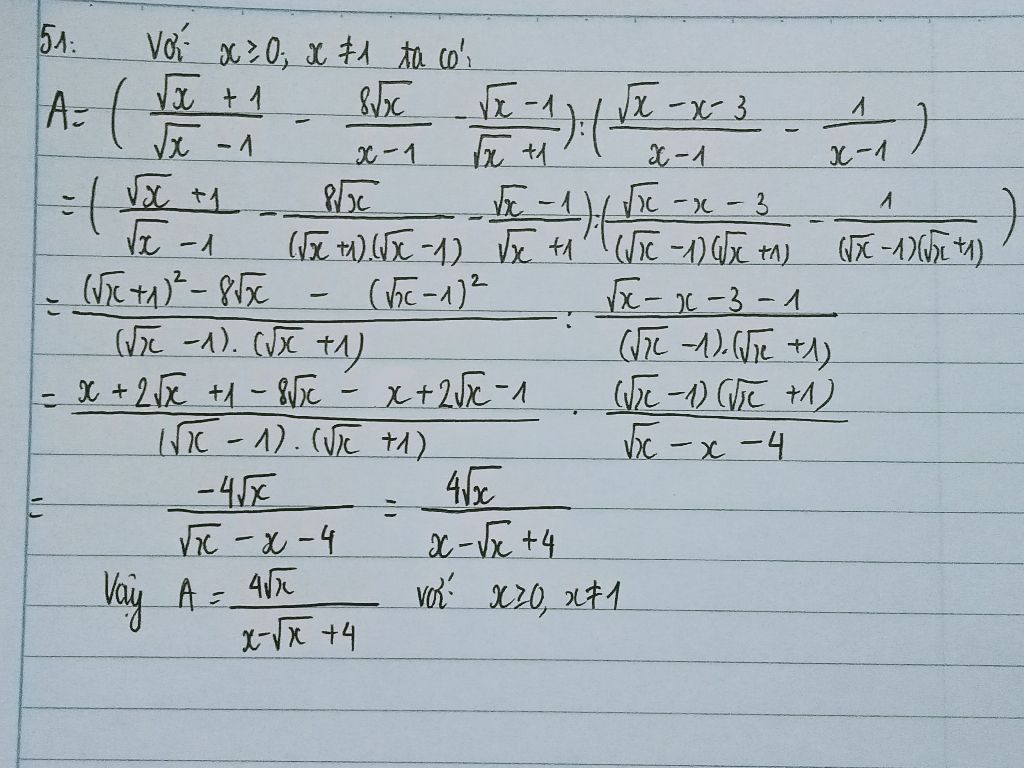 51: Với x ≥ 0; x ≠ 1 ta có:
A = ( (√x + 1)/(√x - 1) - 8√x/(x - 1) - (√x - 1)/(√x + 1) ) : ( (√x - x - 3)/(x - 1) - 1/(x - 1) )
= ( (√x + 1)/(√x - 1) - 8√x/((√x + 1).(√x - 1)) - (√x - 1)/(√x + 1) ) : ( (√x - x - 3)/((√x - 1)(√x + 1)) - 1/((√x - 1)(√x + 1)) )
= ((√x + 1)² - 8√x - (√x - 1)²)/((√x - 1).(√x + 1)) : (√x - x - 3 - 1)/((√x - 1).(√x + 1))
= (x + 2√x + 1 - 8√x - x + 2√x - 1)/((√x - 1).(√x + 1)) . ((√x - 1)(√x + 1))/(√x - x - 4)
= -4√x/(√x - x - 4) = 4√x/(x - √x + 4)
Vậy A = 4√x/(x - √x + 4) với x ≥ 0, x ≠ 1